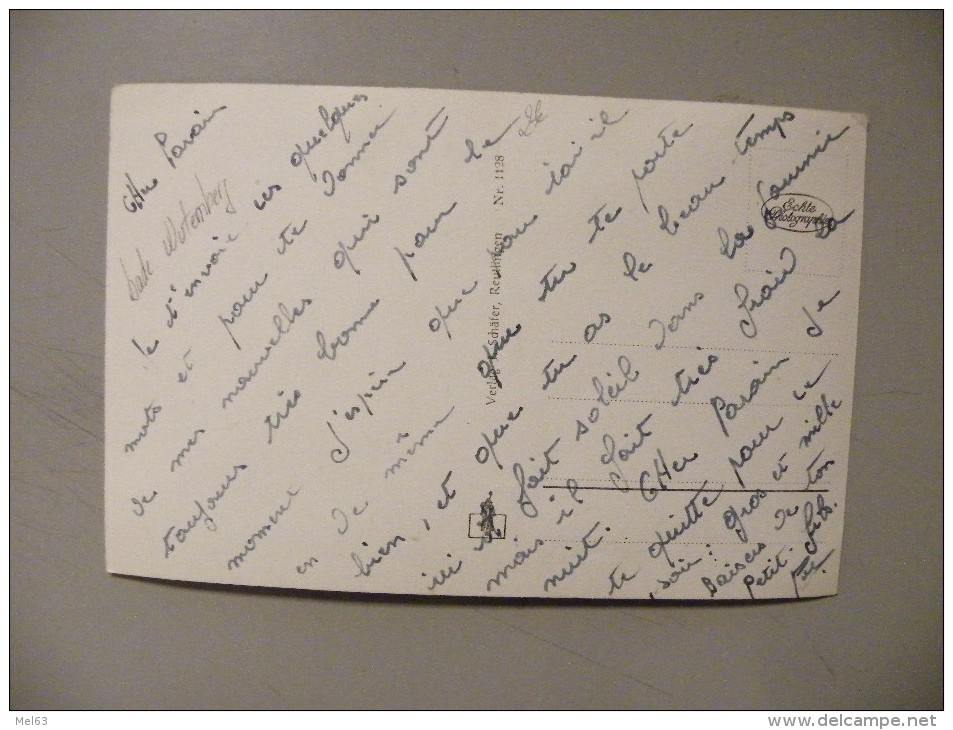 CHer Parain
Bade Wutemberg
Je t'envoie ces quelques
mots et pour te donner
de mes nouvelles qui sont
toujours très bonne pour le
moment J'espère que pour toi il
en de même que tu te porte
bien, et que tu as le beau temps
ici il fait soleil dans la journée
mais il fait très froid la
nuit. CHer Parain je
te quitte pour ce
soir: gros et mille
baisers de ton
petit
Verlag Schäfer, Reutlingen Nr. 1128
Echte
Photographie
Mel63
www.delcampe.net